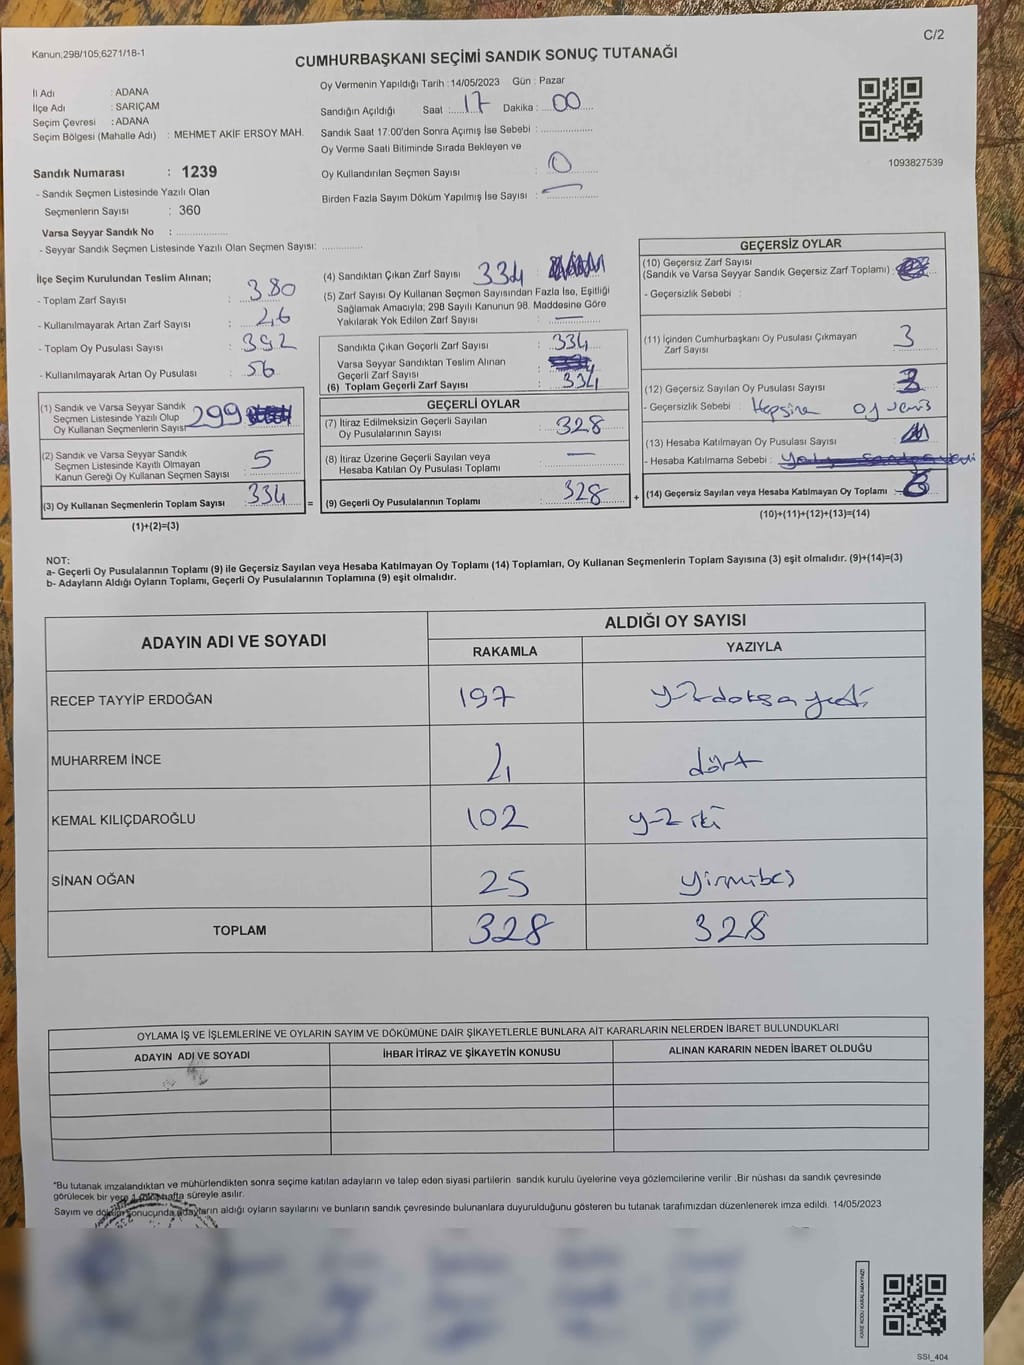 Kanun;298/105,6271/18-1
C/2
CUMHURBAŞKANI SEÇİMİ SANDIK SONUÇ TUTANAĞI
İl Adı : ADANA
İlçe Adı : SARIÇAM
Seçim Çevresi : ADANA
Seçim Bölgesi (Mahalle Adı) : MEHMET AKİF ERSOY MAH.
Sandık Numarası : 1239
- Sandık Seçmen Listesinde Yazılı Olan
Seçmenlerin Sayısı : 360
Varsa Seyyar Sandık No : ..................
- Seyyar Sandık Seçmen Listesinde Yazılı Olan Seçmen Sayısı: ..............
Oy Vermenin Yapıldığı Tarih : 14/05/2023 Gün : Pazar
Sandığın Açıldığı Saat : 17 Dakika : 00
Sandık Saat 17:00'den Sonra Açımış İse Sebebi : ....................
Oy Verme Saati Bitiminde Sırada Bekleyen ve
Oy Kullandırılan Seçmen Sayısı : 0
Birden Fazla Sayım Döküm Yapılmış İse Sayısı : —
1093827539
İlçe Seçim Kurulundan Teslim Alınan;
- Toplam Zarf Sayısı : 380
- Kullanılmayarak Artan Zarf Sayısı : 46
- Toplam Oy Pusulası Sayısı : 392
- Kullanılmayarak Artan Oy Pusulası : 56
(1) Sandık ve Varsa Seyyar Sandık
Seçmen Listesinde Yazılı Olup
Oy Kullanan Seçmenlerin Sayısı 299
(2) Sandık ve Varsa Seyyar Sandık
Seçmen Listesinde Kayıtlı Olmayan
Kanun Gereği Oy Kullanan Seçmen Sayısı 5
(3) Oy Kullanan Seçmenlerin Toplam Sayısı : 334 =
(1)+(2)=(3)
(4) Sandıktan Çıkan Zarf Sayısı 334 :
(5) Zarf Sayısı Oy Kullanan Seçmen Sayısından Fazla İse, Eşitliği
Sağlamak Amacıyla; 298 Sayılı Kanunun 98. Maddesine Göre
Yakılarak Yok Edilen Zarf Sayısı : —
Sandıkta Çıkan Geçerli Zarf Sayısı : 334
Varsa Seyyar Sandıktan Teslim Alınan
Geçerli Zarf Sayısı :
(6) Toplam Geçerli Zarf Sayısı : 334
GEÇERLİ OYLAR
(7) İtiraz Edilmeksizin Geçerli Sayılan
Oy Pusulalarının Sayısı : 328
(8) İtiraz Üzerine Geçerli Sayılan veya
Hesaba Katılan Oy Pusulası Toplamı : —
(9) Geçerli Oy Pusulalarının Toplamı : 328 +
GEÇERSİZ OYLAR
(10) Geçersiz Zarf Sayısı
(Sandık ve Varsa Seyyar Sandık Geçersiz Zarf Toplamı) :
- Geçersizlik Sebebi :
(11) İçinden Cumhurbaşkanı Oy Pusulası Çıkmayan
Zarf Sayısı : 3
(12) Geçersiz Sayılan Oy Pusulası Sayısı : 3
- Geçersizlik Sebebi : Hepsine oy vermiş
(13) Hesaba Katılmayan Oy Pusulası Sayısı :
- Hesaba Katılmama Sebebi :
(14) Geçersiz Sayılan veya Hesaba Katılmayan Oy Toplamı : 6
(10)+(11)+(12)+(13)=(14)
NOT:
a- Geçerli Oy Pusulalarının Toplamı (9) ile Geçersiz Sayılan veya Hesaba Katılmayan Oy Toplamı (14) Toplamları, Oy Kullanan Seçmenlerin Toplam Sayısına (3) eşit olmalıdır. (9)+(14)=(3)
b- Adayların Aldığı Oyların Toplamı, Geçerli Oy Pusulalarının Toplamına (9) eşit olmalıdır.
ADAYIN ADI VE SOYADI
ALDIĞI OY SAYISI
RAKAMLA YAZIYLA
RECEP TAYYİP ERDOĞAN 197 yüzdoksan yedi
MUHARREM İNCE 4 dört
KEMAL KILIÇDAROĞLU 102 yüz iki
SİNAN OĞAN 25 yirmibeş
TOPLAM 328 328
OYLAMA İŞ VE İŞLEMLERİNE VE OYLARIN SAYIM VE DÖKÜMÜNE DAİR ŞİKAYETLERLE BUNLARA AİT KARARLARIN NELERDEN İBARET BULUNDUKLARI
ADAYIN ADI VE SOYADI İHBAR İTİRAZ VE ŞİKAYETİN KONUSU ALINAN KARARIN NEDEN İBARET OLDUĞU
*Bu tutanak imzalandıktan ve mühürlendikten sonra seçime katılan adayların ve talep eden siyasi partilerin sandık kurulu üyelerine veya gözlemcilerine verilir .Bir nüshası da sandık çevresinde
görülecek bir yere 1 (bir) hafta süreyle asılır.
Sayım ve döküm sonucunda adayların aldığı oyların sayılarını ve bunların sandık çevresinde bulunanlara duyurulduğunu gösteren bu tutanak tarafımızdan düzenlenerek imza edildi. 14/05/2023
KARE KODU KARALAMAYINIZ!
SSI_404